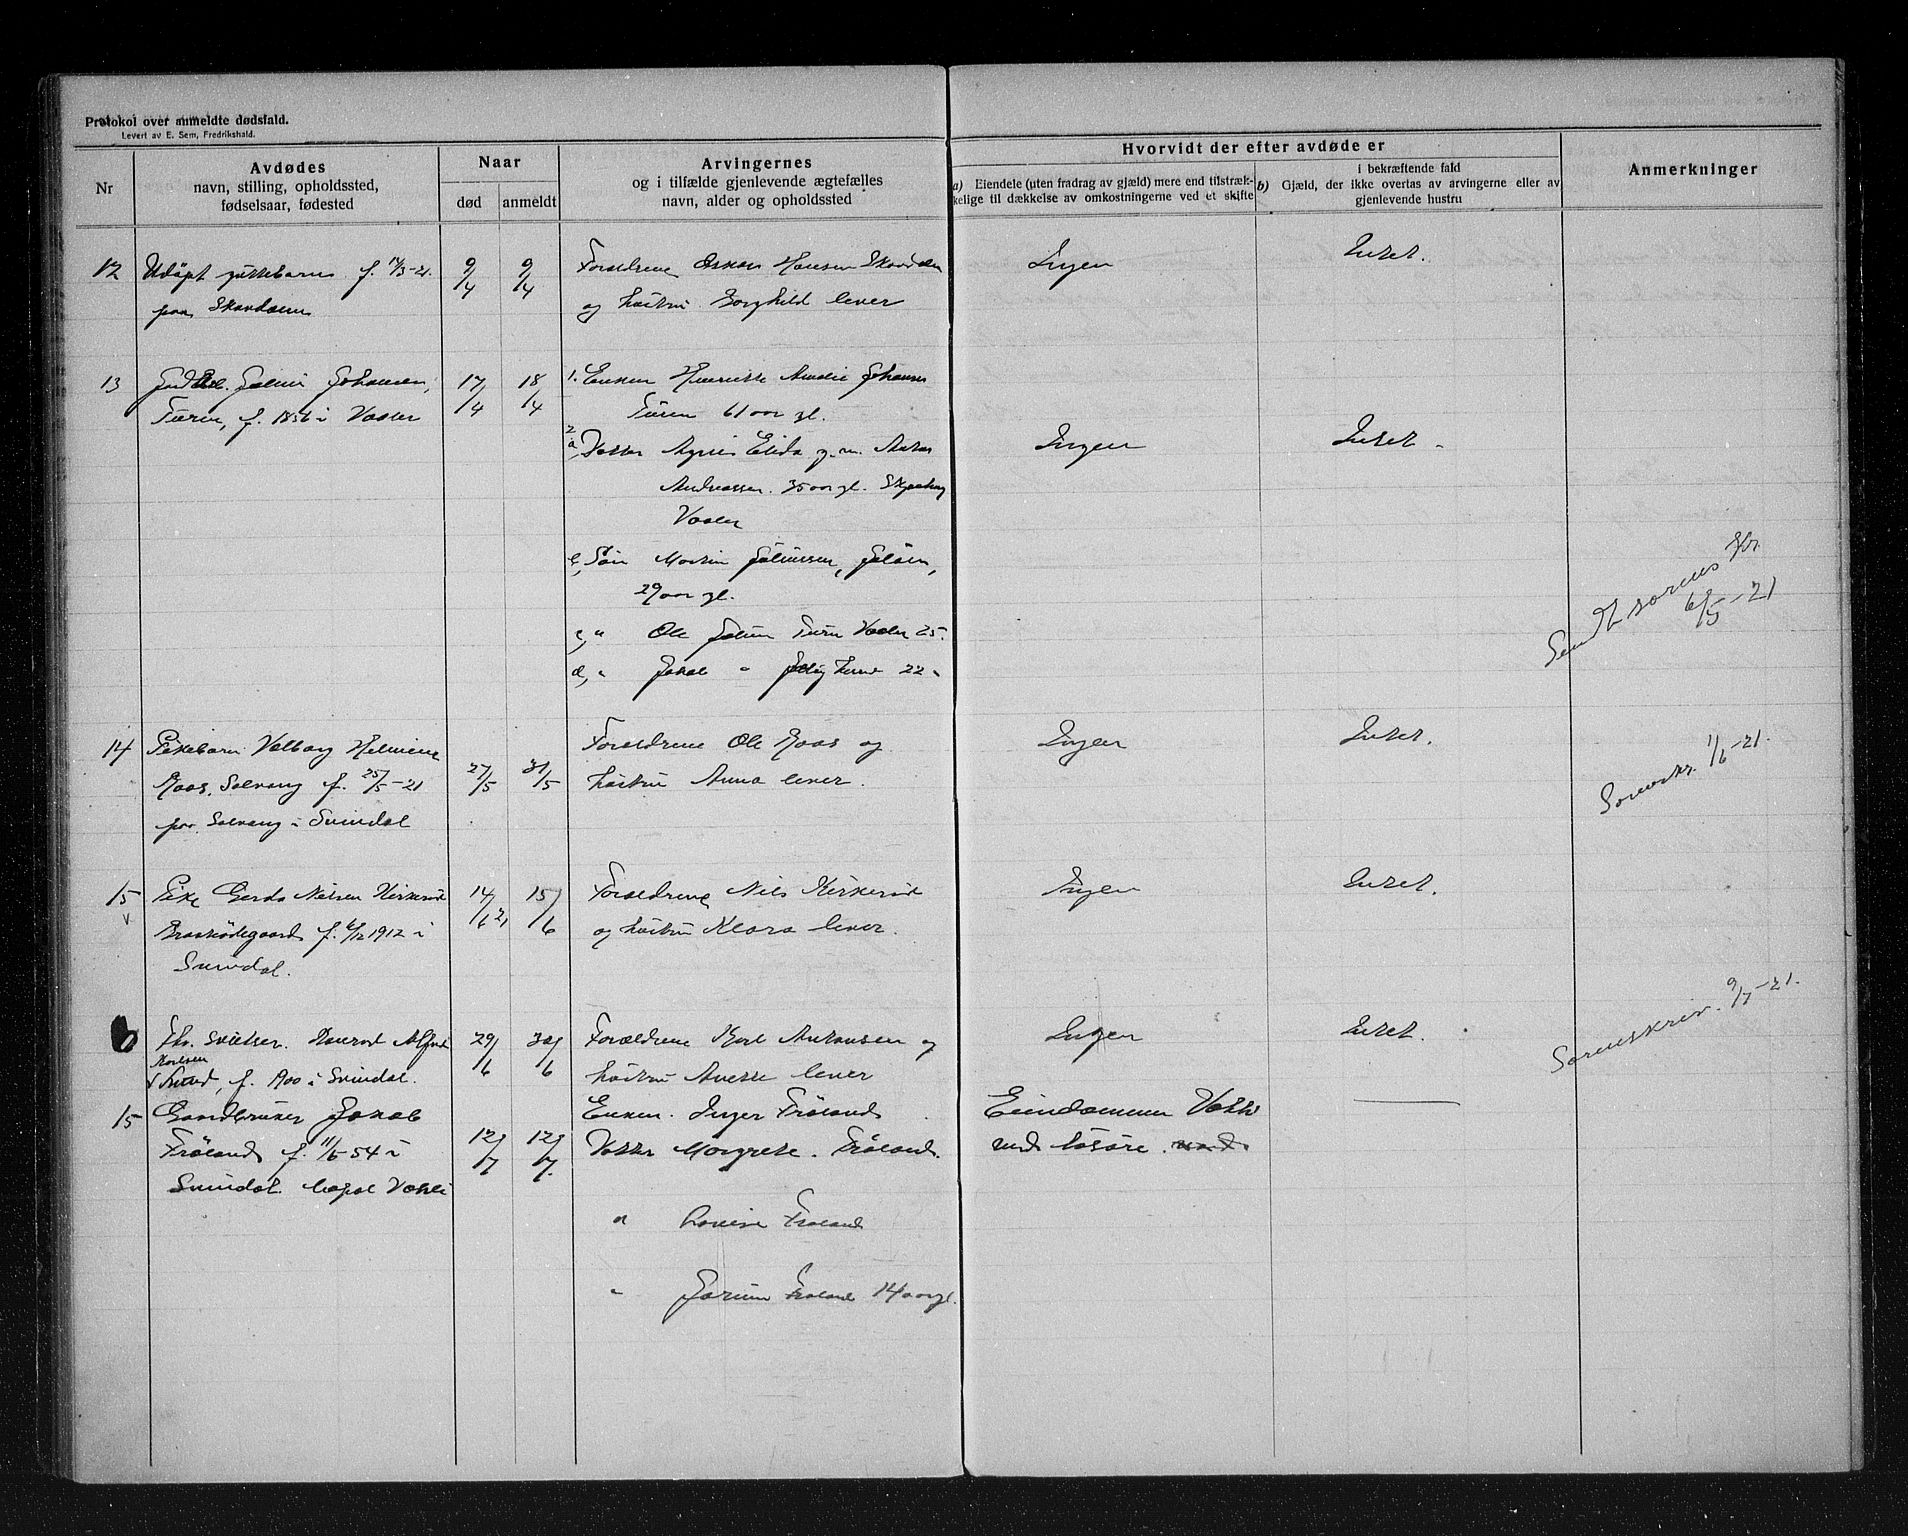 Protokol over anmeldte dødsfald.
Levert av E. Sem, Fredrikshald.
Nr
Avdødes
navn, stilling, opholdssted,
fødselsaar, fødested
Naar
død
anmeldt
Arvingernes
og i tilfælde gjenlevende ægtefælles
navn, alder og opholdssted
Hvorvidt der efter avdøde er
a) Eiendele (uten fradrag av gjæld) mere end tilstræk-
kelige til dækkelse av omkostningerne ved et skifte
i bekræftende fald
b) Gjæld, der ikke overtas av arvingerne eller av
gjenlevende hustru
Anmerkninger
12
Udöpt guttebarn f. 17/3-21.
paa Skovdalen
9/4
9/4
Forældrene Oskar Hansen
og hustru Borghild lever
Ingen
Intet.
13
Johansen,
Turen, f. 1856 i Vaaler
17/4
18/4
1. Enken Amalie Johansen
Turen 61 aar gl.
2
a, Datter Agnes Elida g.m. Anton
Andreassen 35 aar gl.
Vaaler
Ingen
Intet -
Søn Martin Jeløen,
29 aar gl.
c, " Ole Turen Vaaler 25.
d, " Jakob " 22 "
Sendt sorenskr.
6/5-21
14
Pikebarn Valborg Helmine
Solvang f. 25/5-21
paa Solvang i Svindal
27/5
31/5
Forældrene Ole og
hustru Anna lever.
Ingen
Intet.
Sorenskr. 1/6-21.
15
v
Pike Gerda Nielsen Kirkerud
f. 6/12 1912 i
Svindal.
14/6 21
15/6
Forældrene Nils Kirkerud
og hustru Klara lever.
Ingen
Intet.
6
fhv. Konrad Alfred
Karlsen
f. 1900 i Svindal.
29/6
30/6
Forældrene Karl Antonsen og
hustru Anette lever
Ingen
Intet.
Sorenskriv. 9/7-21.
15
Gaardbruker Jakob
Fröland f. 11/6-54 i
Svindal.
12/7
12/7.
Enken. Inger Fröland
Datter Margrete. Fröland.
" Louise Fröland
" Fröland 14 aar gl.
Eiendommen
med lösöre.